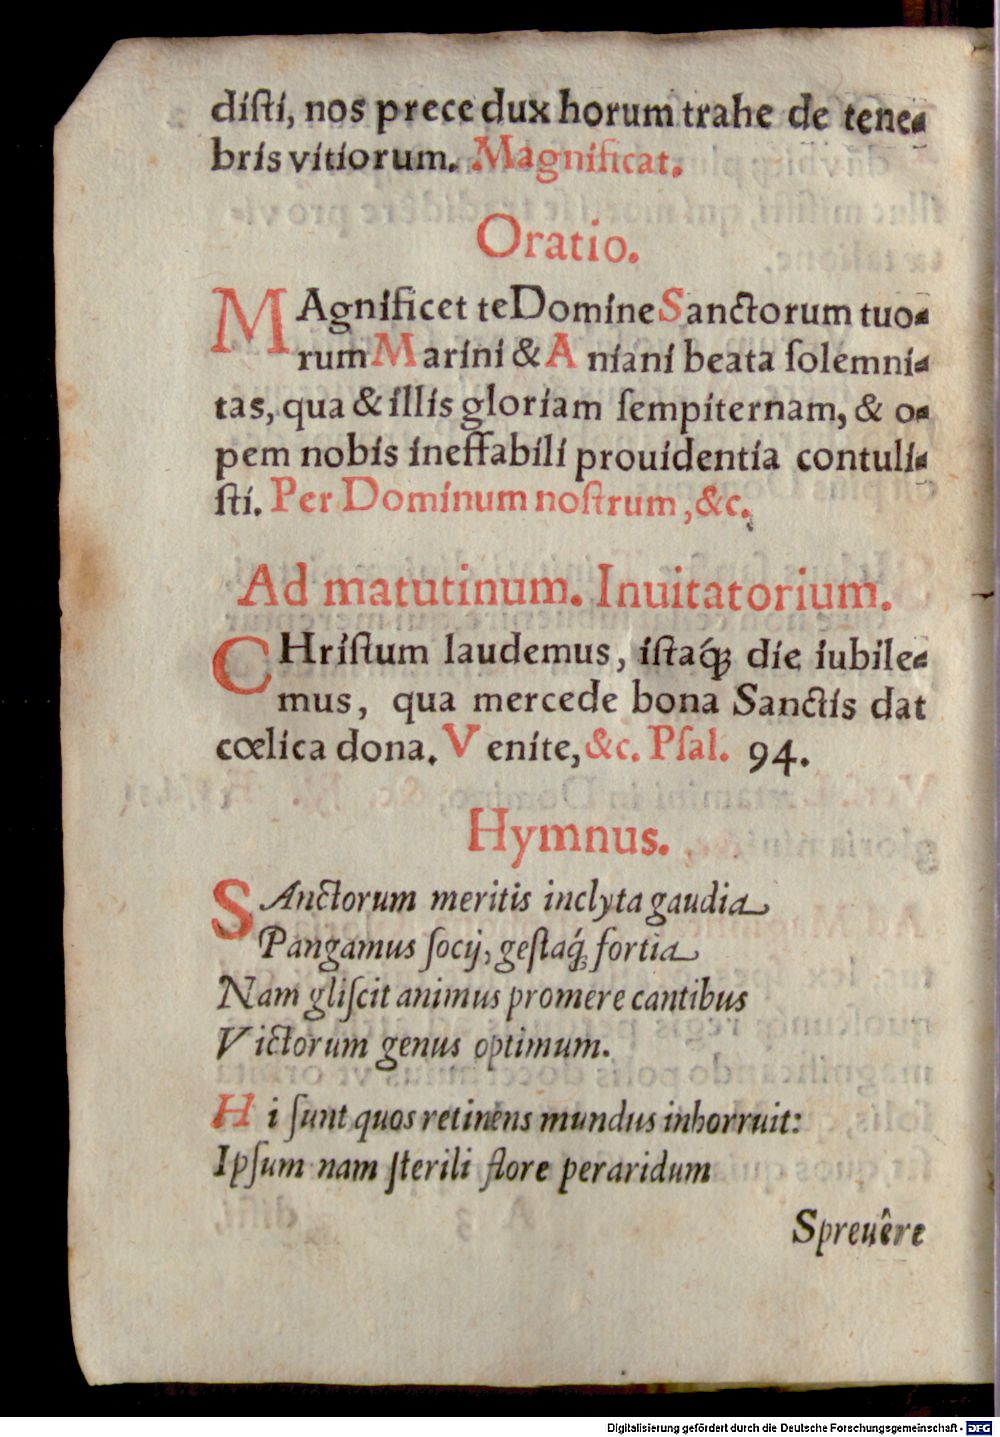 disti, nos prece dux horum trahe de tene-
bris vitiorum. Magnificat.
Oratio.
MAgnificet te Domine Sanctorum tuo-
rum Marini & Aniani beata ſolemni-
tas, qua & illis gloriam ſempiternam, & o-
pem nobis ineffabili prouidentia contuli-
ſti. Per Dominum noſtrum, &c.
Ad matutinum. Inuitatorium.
CHriſtum laudemus, iſtaq́; die iubile-
mus, qua mercede bona Sanctis dat
cœlica dona. Venite, &c. Pſal. 94.
Hymnus.
SAnctorum meritis inclyta gaudia
Pangamus ſocij, geſtaq́; fortia
Nam gliſcit animus promere cantibus
Victorum genus optimum.
Hi ſunt quos retinens mundus inhorruit:
Ipſum nam ſterili flore peraridum
Spreuêre
Digitalisierung gefördert durch die Deutsche Forschungsgemeinschaft - DFG